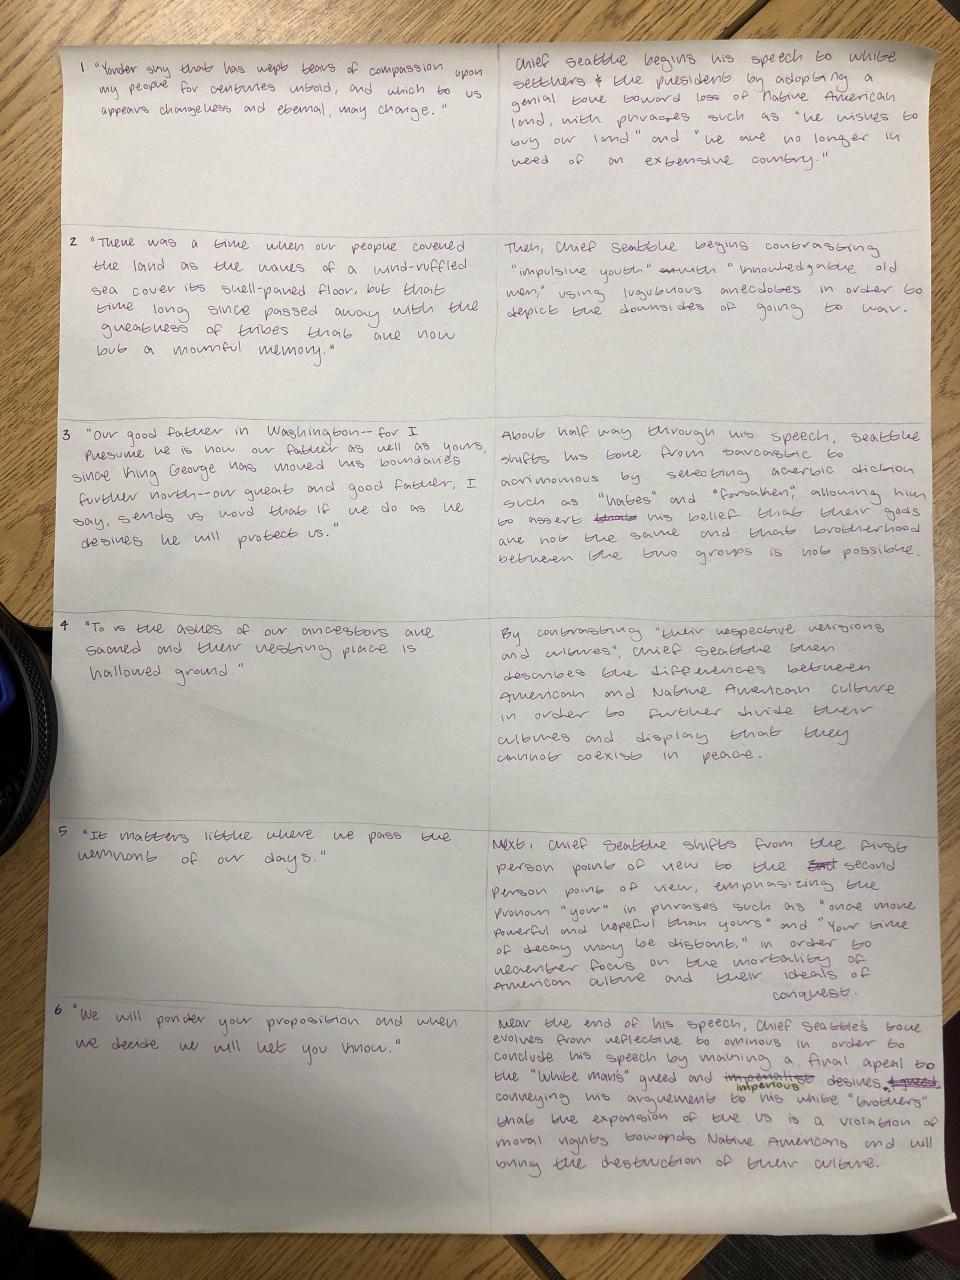 1 "Yonder sky that has wept tears of compassion upon
my people for centuries untold, and which to us
appears changeless and eternal, may change."
Chief Seattle begins his speech to white
setthers & the president by adopting a
genial tone toward loss of Native American
land, with phrases such as "he wishes to
buy our land" and "we are no longer in
need of an extensive country."
2 "There was a time when our people covered
the land as the waves of a wind-ruffled
sea cover its shell-paved floor, but that
time long since passed away with the
greatness of tribes that are now
but a mournful memory."
Then, Chief Seattle begins contrasting
"impulsive youth" with "knowledgable old
men," using lugubrious anecdotes in order to
depict the downsides of going to war.
3 "Our good father in Washington--for I
presume he is now our father as well as yours,
since King George has moved his boundaries
further north--our great and good father, I
say, sends us word that if we do as he
desires he will protect us."
About half way through his speech, Seattle
shifts his tone from sarcastic to
acrimonious by selecting acerbic diction
such as "hates" and "forsaken", allowing him
to assert that his belief that their gods
are not the same and that brotherhood
between the two groups is not possible.
4 "To us the ashes of our ancestors are
sacred and their resting place is
hallowed ground."
By contrasting "their respective religions
and cultures", Chief Seattle then
describes the differences between
American and Native American culture
in order to further divide their
cultures and display that they
cannot coexist in peace.
5 "It matters little where we pass the
remnant of our days."
Next, Chief Seattle shifts from the first
person point of view to the second
person point of view, emphasizing the
pronoun "your" in phrases such as "once more
powerful and hopeful than yours" and "Your time
of decay may be distant." in order to
recenter focus on the mortality of
American culture and their ideals of
conquest.
6 "We will ponder your proposition and when
we decide we will let you know."
Near the end of his speech, Chief Seattle's tone
evolves from reflective to ominous in order to
conclude his speech by making a final apeal to
the "White man's" greed and imperialist desires,
imperious
conveying his arguement to his white "brothers"
that the expansion of the US is a violation of
moral rights towards Native Americans and will
bring the destruction of their culture.